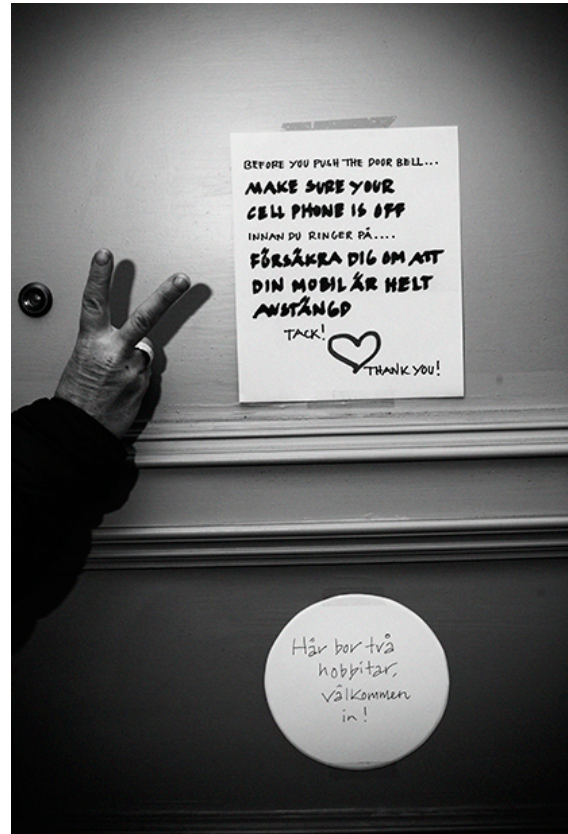 BEFORE YOU PUSH THE DOOR BELL...
MAKE SURE YOUR
CELL PHONE IS OFF
INNAN DU RINGER PÅ....
FÖRSÄKRA DIG OM ATT
DIN MOBIL ÄR HELT
AVSTÄNGD
TACK!
THANK YOU!
Här bor två
hobbitar,
välkommen
in!